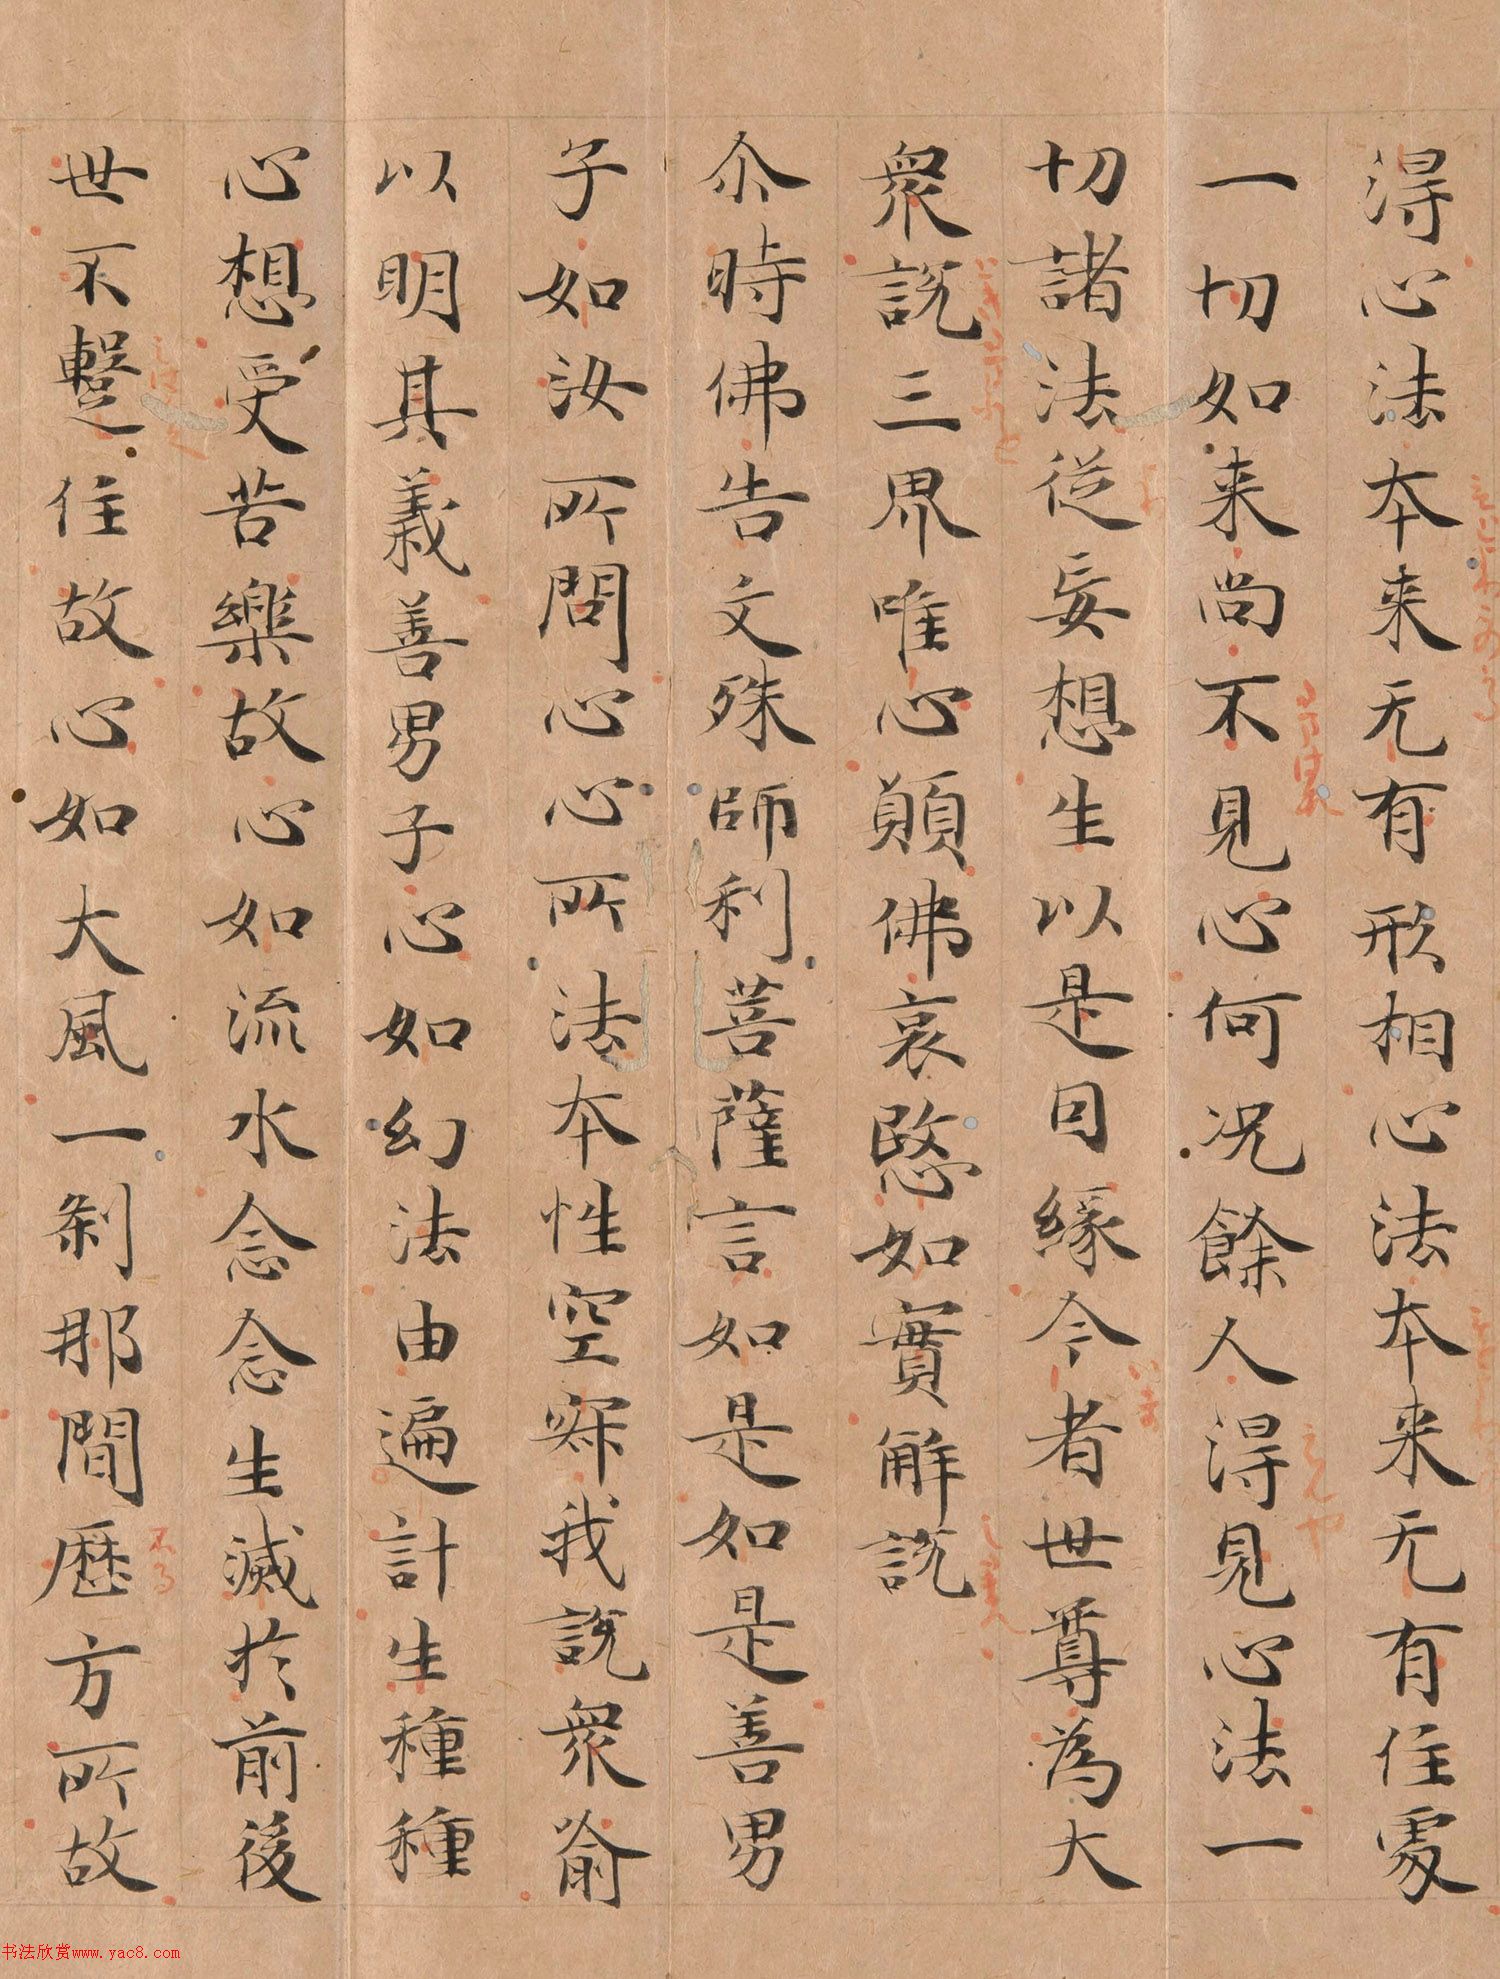 得心法本来无有形相心法本来无有住處
一切如来尚不見心何况餘人得見心法一
切諸法従妄想生以是因緣今者世尊為大
衆說三界唯心願佛哀愍如實解說
尒時佛告文殊師利菩薩言如是如是善男
子如汝所問心心所法本性空寂我說衆喻
以明其義善男子心如幻法由遍計生種種
心想受苦樂故心如流水念念生滅扵前後
世不蹔住故心如大風一剎那間歷方所故
书法欣赏www.yac8.com